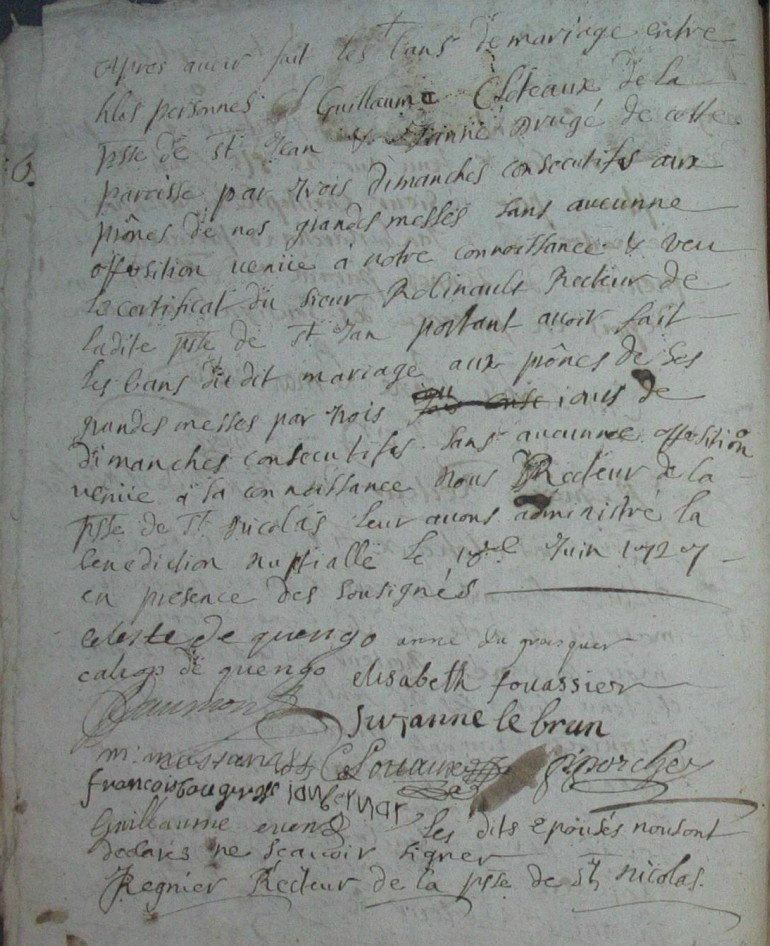 Apres avoir fait les bans de mariage entre
hles personnes Guillaume Cloteaux de la
psse de St Jean & Jeanne drugé de cette
paroisse par trois dimanches consecutifs aux
prônes de nos grandes messes sans aucunne
opposition veniie a notre connoissance & veu
le certificat du sieur Rolinault Recteur de
ladite psse de St Jan portant avoir fait
les bans du dit mariage aux prônes de ses
grandes messes par trois jours de
dimanches consecutifs sans aucunne opposition
veniie a sa connoissance nous Recteur de la
psse de St nicolas leur avons administré la
benediction nuptialle le Juin 1727
en presence des sousignés
celeste de quengo anne du groesquer
de quengo elisabeth fouassier
suzanne le brun
m: porcher
francois jan bernar
Guillaume les dits epousés nousont
declarés ne scavoir signer
Regnier Recteur de la psse de St nicolas.